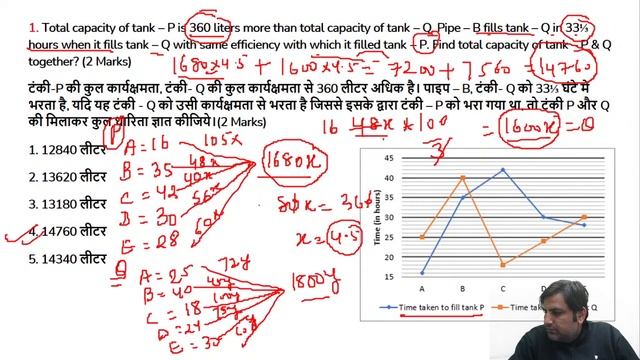 1. Total capacity of tank – P is 360 liters more than total capacity of tank – Q. Pipe – B fills tank – Q in 33⅓
hours when it fills tank – Q with same efficiency with which it filled tank – P. Find total capacity of tank – P & Q
together? (2 Marks)
1680×4.5 + 1600×4.5 = 7200 + 7560 = 14760
टंकी-P की कुल कार्यक्षमता, टंकी- Q की कुल कार्यक्षमता से 360 लीटर अधिक है। पाइप – B, टंकी- Q को 33⅓ घंटे में
भरता है, यदि यह टंकी - Q को उसी कार्यक्षमता से भरता है जिससे इसके द्वारा टंकी – P को भरा गया था, तो टंकी P और Q
की मिलाकर कुल धारिता ज्ञात कीजिये।(2 Marks)
16 48x × 100/3 = 1600x = Q
P
1. 12840 लीटर
2. 13620 लीटर
3. 13180 लीटर
4. 14760 लीटर
5. 14340 लीटर
A = 16 105x
B = 35 48x
C = 42 40x
D = 30 56x
E = 28 60x
1680x
80x = 360
x = 4.5
Q
A = 25 72y
B = 40 45y
C = 18 100y
D = 24 75y
E = 30 60y
1800y
Time (in hours)
45
40
35
30
25
20
15
10
A B C D
Time taken to fill tank P
Time taken
Q